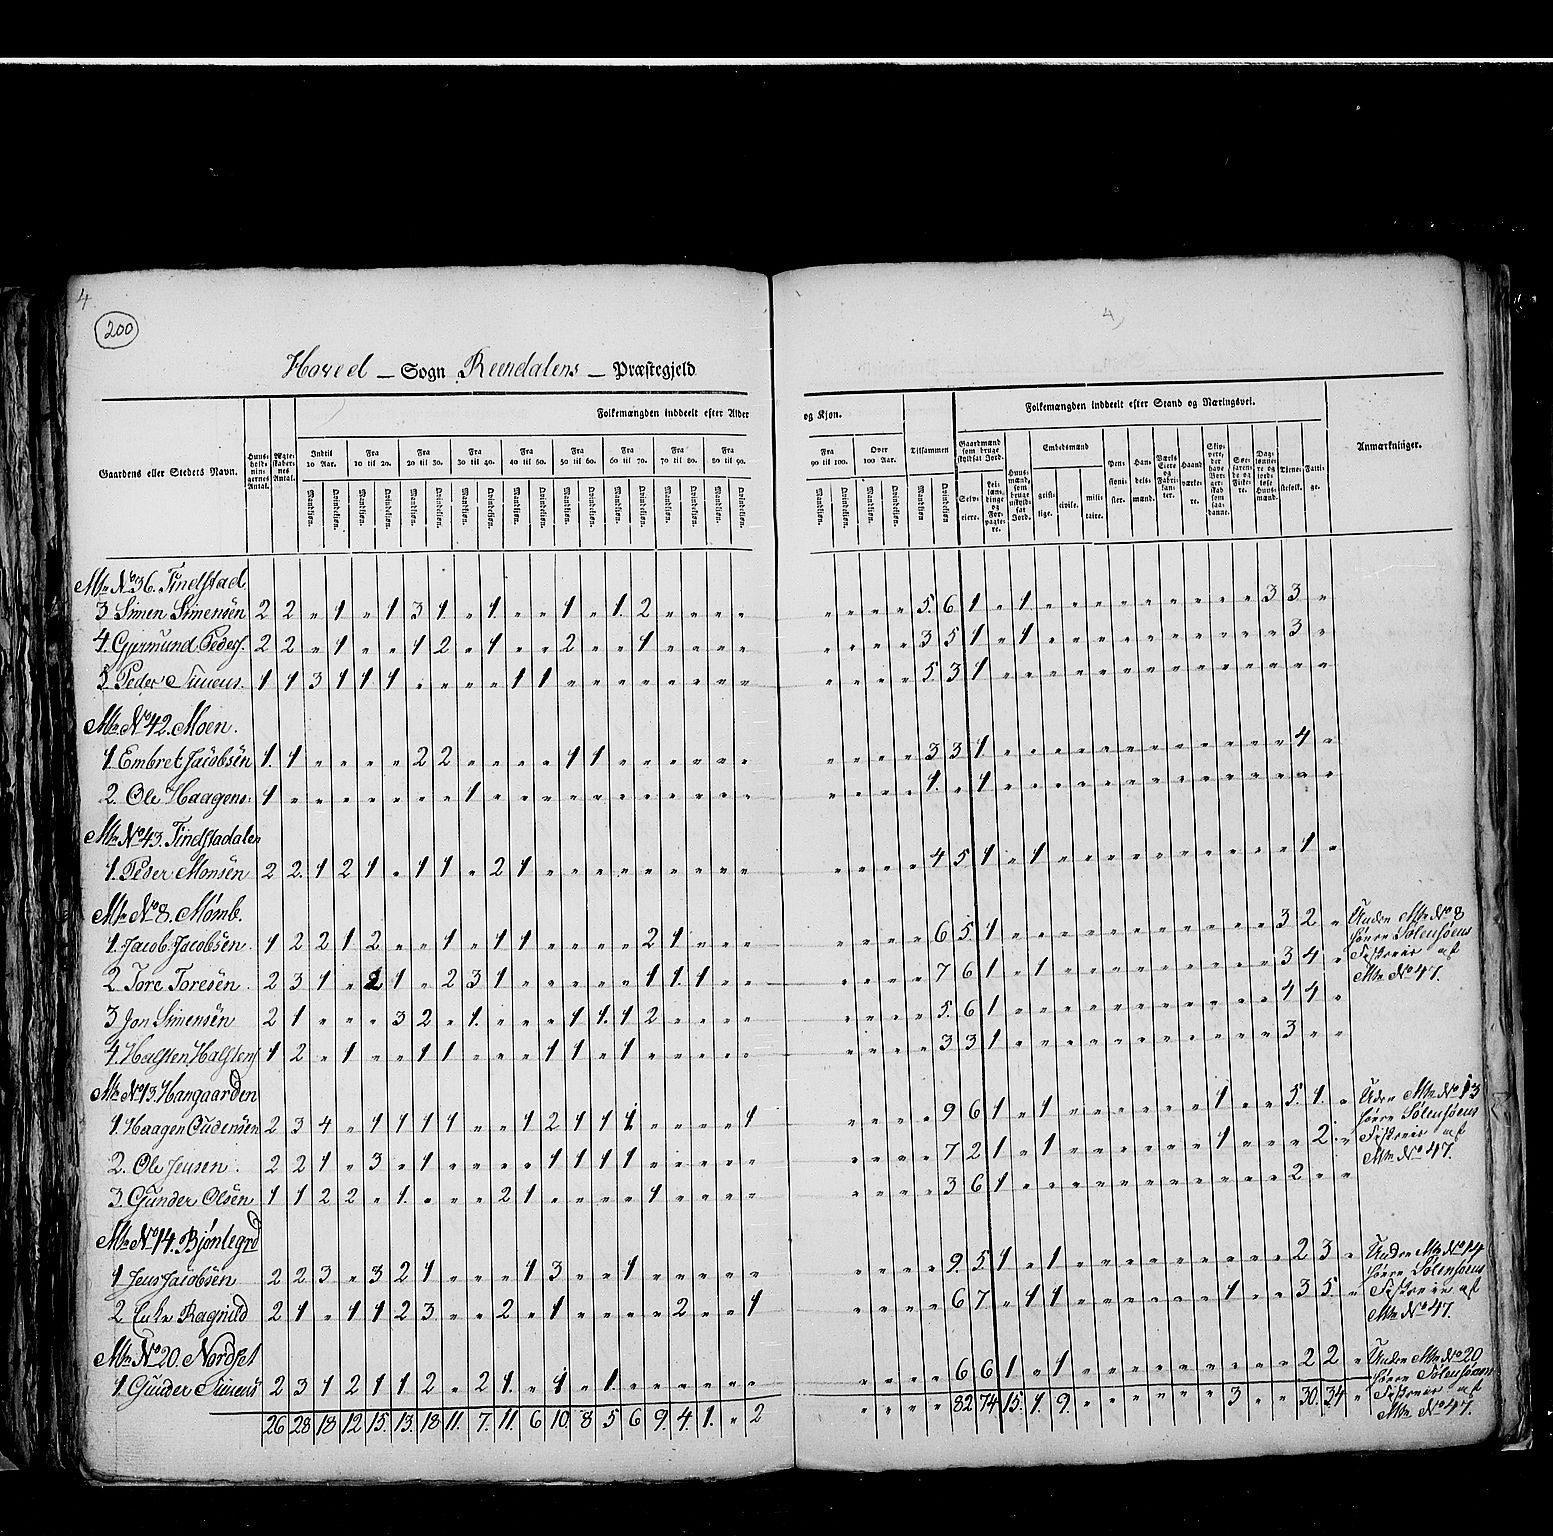 4
200
4)
Hoved – Sogn Reendalens – Præstegjeld
Folkemængden inddeelt efter Alder og Kjøn.
Folkemængden inddeelt efter Stand og Næringsvei.
Gaardens eller Steders Navn.
Huus-holdningernes Antal.
Ægteskabernes Antal.
Indtil 10 Aar.
Fra 10 til 20.
Fra 20 til 30.
Fra 30 til 40.
Fra 40 til 50.
Fra 50 til 60.
Fra 60 til 70.
Fra 70 til 80.
Fra 80 til 90.
Fra 90 til 100.
Over 100 Aar.
Tilsammen
Mandkjøn. Qvindekjøn.
Gaardmænd som bruge skyldsat Jord.
Selveiere.
Embedsmænd
geistlige.
civile.
militaire.
Pensionister.
Handelsmænd.
Haandværkere.
Tienestefolk.
Fattige.
Anmærkninger.
Mtr No 36. Tindstad
3 Simen Simensen 2 2 „ 1 „ 1 3 1 „ 1 „ „ 1 „ 1. 2 „ „ „ „ „ „ „ „ 5. 6 1 „ 1 „ „ „ „ „ „ „ „ „ 3 3 „
4. Gjermund Peders. 2 2 „ 1 „ „ 1 2 „ 1 „ „ 2 „ „ 1 „ „ „ „ „ „ „ „ 3 5 1 „ 1 „ „ „ „ „ „ „ „ „ „ 3 „
5. Peder Simens. 1 1 3 1 1 1 „ „ „ „ 1 1 „ „ „ „ „ „ „ „ „ „ „ „ 5. 3 1 „ „ „ „ „ „ „ „ „ „ „ „ „ „
Mtr No 42. Moen.
1. Embret Jacobsen 1. 1 „ „ „ „ 2 2 „ „ „ „ 1 1 „ „ „ „ „ „ „ „ „ „ 3 3 1 „ „ „ „ „ „ „ „ „ „ „ „ 4 „
2. Ole Haagens. 1 „ „ „ „ „ „ „ 1 „ „ „ „ „ „ „ „ „ „ „ „ „ „ „ 1. „ 1 „ „ „ „ „ „ „ „ „ „ „ „ „ „
Mtr No 43. Tindstadalen
1. Peder Monsen 2 2. 1 2 1 „ 1 1 „ 2 1 „ „ „ „ „ „ „ „ „ „ „ „ „ 4 5. 1 „ 1 „ „ „ „ „ „ „ „ „ „ 1 „
Mtr No 8. Momb.
1. Jacob Jacobsen. 1 2 2 1 2 „ „ 1 „ 1 1 „ „ „ „ 2 1 „ „ „ „ „ „ „ 6 5 1 „ „ „ „ „ „ „ „ „ „ „ 3 2 „
2. Tore Toresen. 2 3 1 „ 2 1 „ 2 3 1 „ „ „ „ „ 1 1. 1 „ „ „ „ „ „ 7 6 1 „ 1 „ „ „ „ „ „ „ „ „ 3 4 „
3 Jon Simensen 2 1 „ „ „ 3 2 „ 1. „ „ „ 1 1. 1 2 „ „ „ „ „ „ „ „ 5. 6 1 „ „ „ „ „ „ „ „ „ „ „ 4 4 „
4. Halsten Halstens 1 2 „ 1 „ „ 1 1 „ „ „ 1 1 „ 1 „ „ „ „ „ „ „ „ „ 3 3 1 „ „ „ „ „ „ „ „ „ „ „ 3 „ „
Mtr No 13. Hangaarden
1. Haagen Oudensen 2 3 4 „ 1 1 1 1 „ „ 1 2 1 1 1 „ „ „ „ 1 „ „ „ „ 9 6 1 „ 1 „ „ „ „ „ „ 1 „ „ 5. 1. „
2. Ole Jensen. 2 2 1 „ 3 „ 1 „ „ „ „ 1 1 1 1 „ „ „ „ „ „ „ „ „ 7 2 1 „ 1 „ „ „ „ „ „ 1 „ „ „ 2. „
3. Gunder Olsen 1 1 2 2 „ 1. „ „ „ 2 1 „ „ „ „ 1 „ „ „ „ „ „ „ „ 3 6 1 „ „ „ „ „ „ „ „ „ „ „ 2 „ „
Mtr No 14. Bjøntegrd
1 Jens Jacobsen 2 2 3 „ 3 2 1 „ „ „ 1 3 „ „ 1 „ „ „ „ „ „ „ „ „ 9. 5 1 „ 1 „ „ „ „ „ „ „ „ „ 2 3 „
2 Enke Ragnild 2 1 „ 1 1 2 3 „ „ 2 „ 1 „ „ „ „ 2 „ „ 1 „ „ „ „ 6 7 „ 1 1 „ „ „ „ „ „ 1 „ „ 3 5. „
Mtr No 20. Nordset
1. Gunder Simens 2 3 1 2 1 1 2 „ 2 1. „ 1 „ 1 „ „ „ „ „ „ „ „ „ „ 6 6 1 „ 1 „ „ „ „ „ „ „ „ „ 2 2 „
26 28 18 12 15. 13. 18 11. 7. 11. 6 10. 8 5 6 9. 4 1. „ 2 „ „ „ „ 82 74 15. 1 9. „ „ „ „ „ „ 3 „ „ 30. 34. „
Under Mtr No 8
hører Sølensøens
Fiskevær af
Mtr No 47.
Under Mtr No 13
hører Sølensøens
Fiskevær af
Mtr No 47.
Under Mtr No 14
hører Sølensøens
Fiskevær af
Mtr No 47.
Under Mtr No 20
hører Sølensøens
Fiskevær af
Mtr No 47.